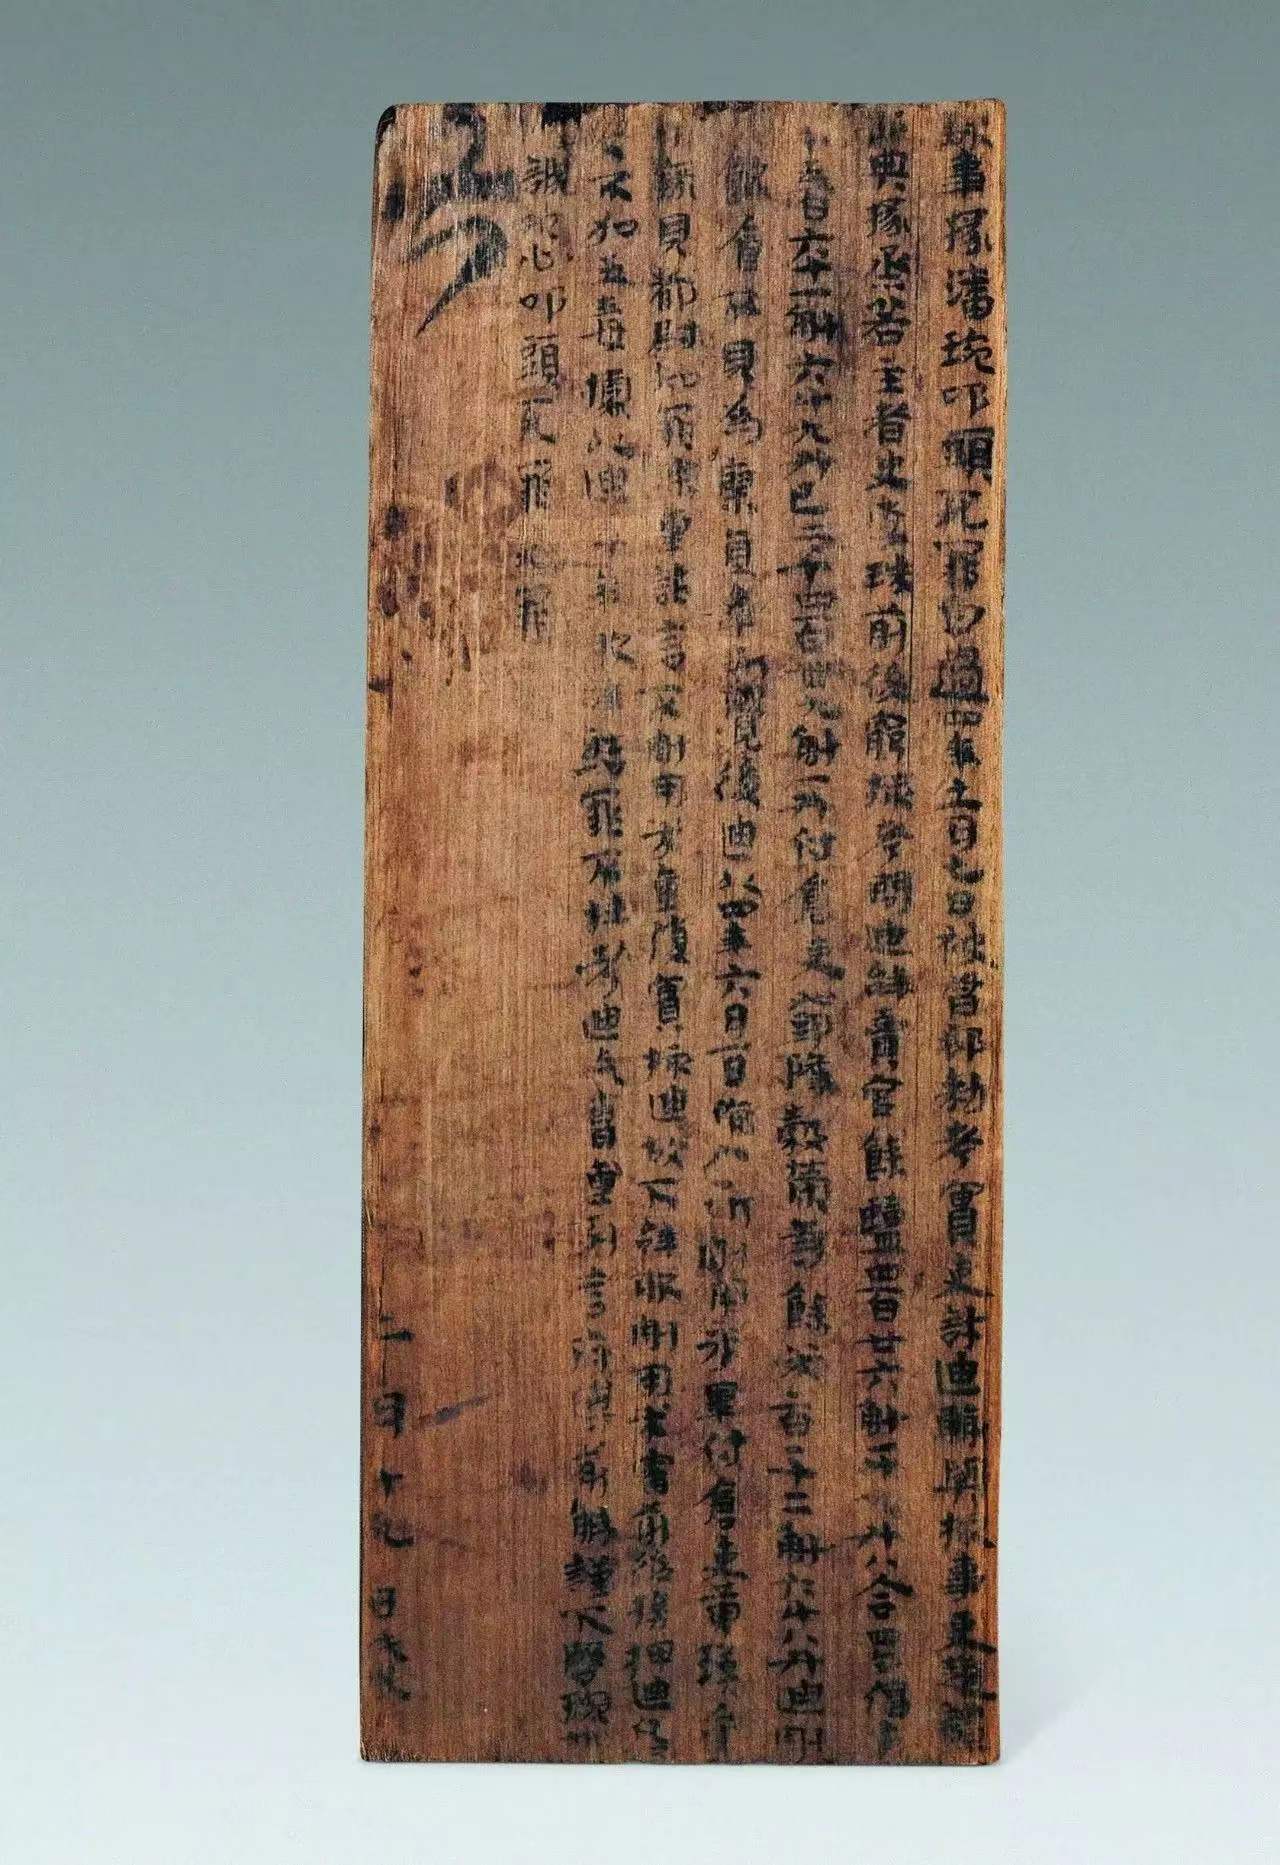 錄事掾潘琬叩頭死罪白過四年十一月七日被督郵敕考實吏許迪輒與核事吏趙譚
部典掾烝若主者史李珠前後窮核考問迪辭賣官餘鹽四百廿六斛一斗九升八合四勺偪米
二千五百六十一斛六斗九升已二千四百卌九斛一升付倉吏鄧隆穀榮等餘米一百一十二斛六斗八升迪割
用飲食不見為廖直事所覺後迪以四年六月一日偷入所割用米畢付倉吏黃瑛受
前錄見都尉知罪深重詣言不割用米重復實核迪故下辭服割用米審前後榜押迪凡百
卅下不加五毒據以迪今年服辭結罪不枉考迪乞曹重列言府傅前解謹下啟琬誠惶
誠恐叩頭死罪死罪
若
二月十九日戊戌